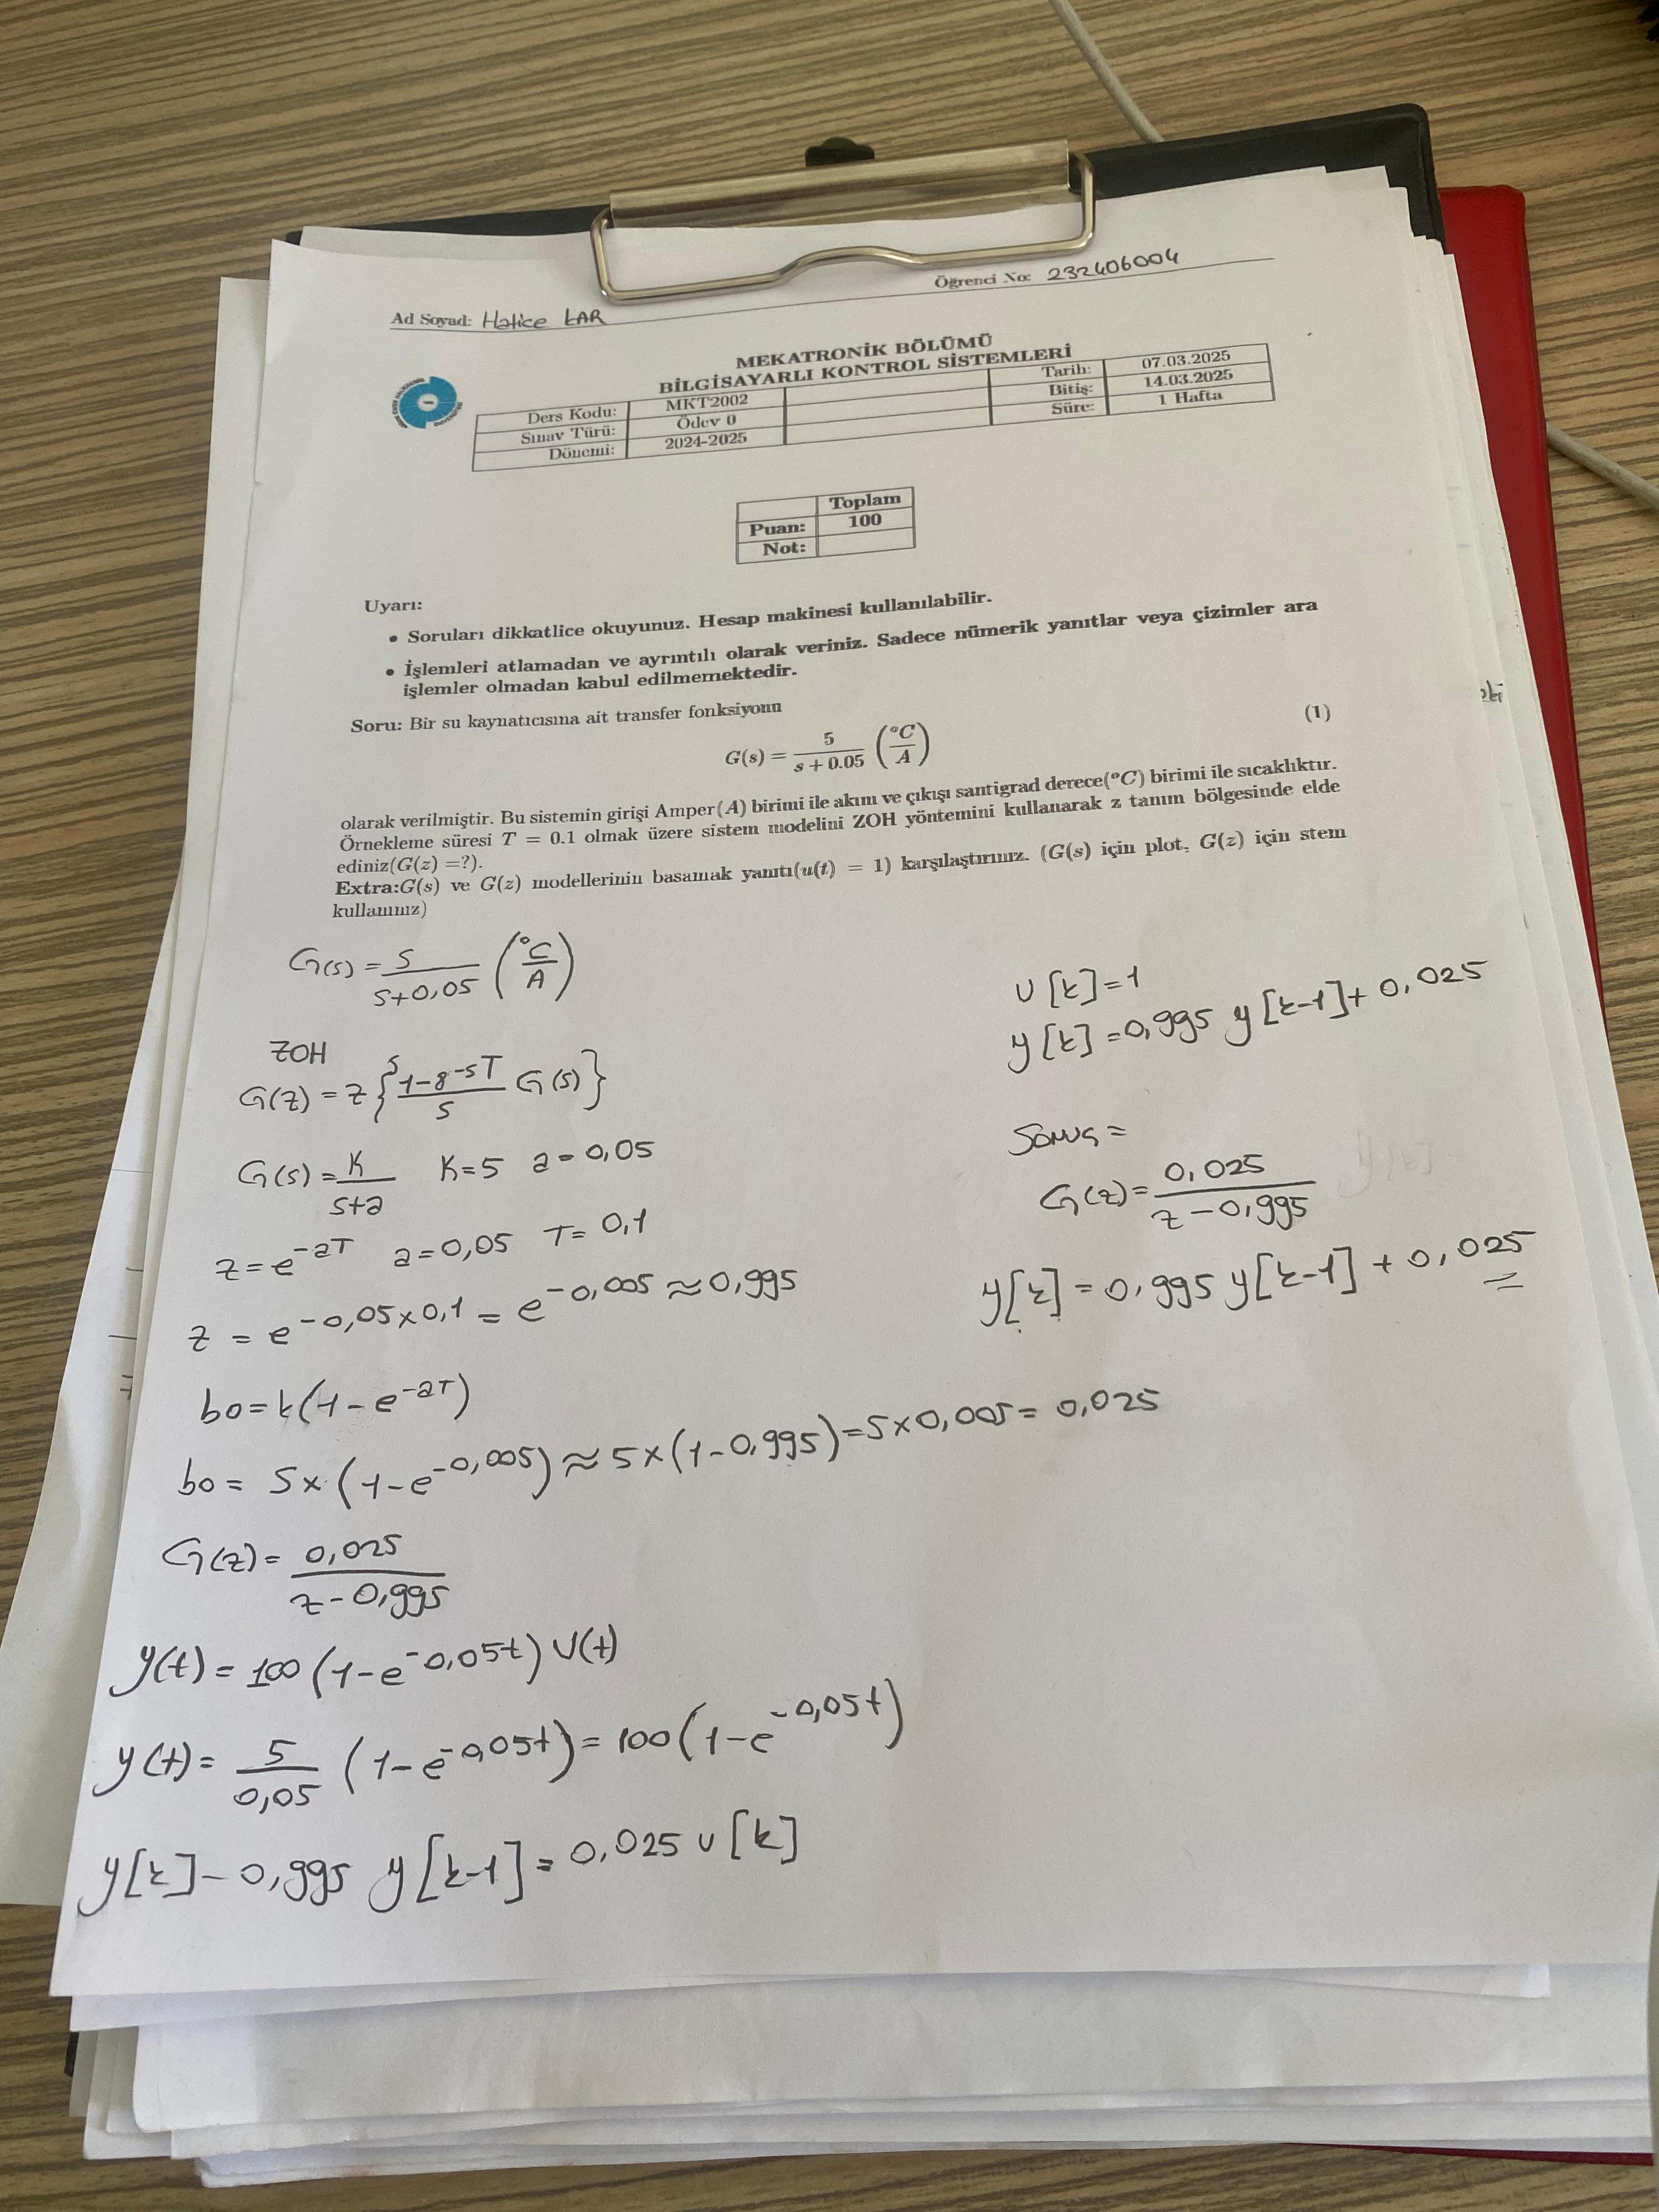 Öğrenci No: 232406004
Ad Soyad: Hatice LAR
MEKATRONİK BÖLÜMÜ
BİLGİSAYARLI KONTROL SİSTEMLERİ
Ders Kodu: MKT2002 Tarih: 07.03.2025
Sınav Türü: Ödev 0 Bitiş: 14.03.2025
Dönemi: 2024-2025 Süre: 1 Hafta
Toplam
Puan: 100
Not:
Uyarı:
• Soruları dikkatlice okuyunuz. Hesap makinesi kullanılabilir.
• İşlemleri atlamadan ve ayrıntılı olarak veriniz. Sadece nümerik yanıtlar veya çizimler ara
işlemler olmadan kabul edilmemektedir.
Soru: Bir su kaynatıcısına ait transfer fonksiyonu
G(s) = 5/(s + 0.05) (°C/A) (1)
olarak verilmiştir. Bu sistemin girişi Amper(A) birimi ile akım ve çıkışı santigrad derece(°C) birimi ile sıcaklıktır.
Örnekleme süresi T = 0.1 olmak üzere sistem modelini ZOH yöntemini kullanarak z tanım bölgesinde elde
ediniz(G(z) =?).
Extra:G(s) ve G(z) modellerinin basamak yanıtı(u(t) = 1) karşılaştırınız. (G(s) için plot, G(z) için stem
kullanınız)
G(s) = 5/(s+0,05) (°C/A)
ZOH
G(z) = z {(1-e^-sT)/s G(s)}
G(s) = K/(s+a) K=5 a=0,05
z = e^-aT a=0,05 T=0,1
z = e^-0,05x0,1 = e^-0,005 ≈ 0,995
bo = k(1-e^-aT)
bo = 5x(1-e^-0,005) ≈ 5x(1-0,995) = 5x0,005 = 0,025
G(z) = 0,025/(z-0,995)
y(t) = 100 (1-e^-0,05t) U(t)
y(t) = 5/0,05 (1-e^-0,05t) = 100(1-e^-0,05t)
y[k] - 0,995 y[k-1] = 0,025 u[k]
U[k]=1
y[k] = 0,995 y[k-1] + 0,025
Sonuç =
G(z) = 0,025/(z-0,995)
y[k] = 0,995 y[k-1] + 0,025